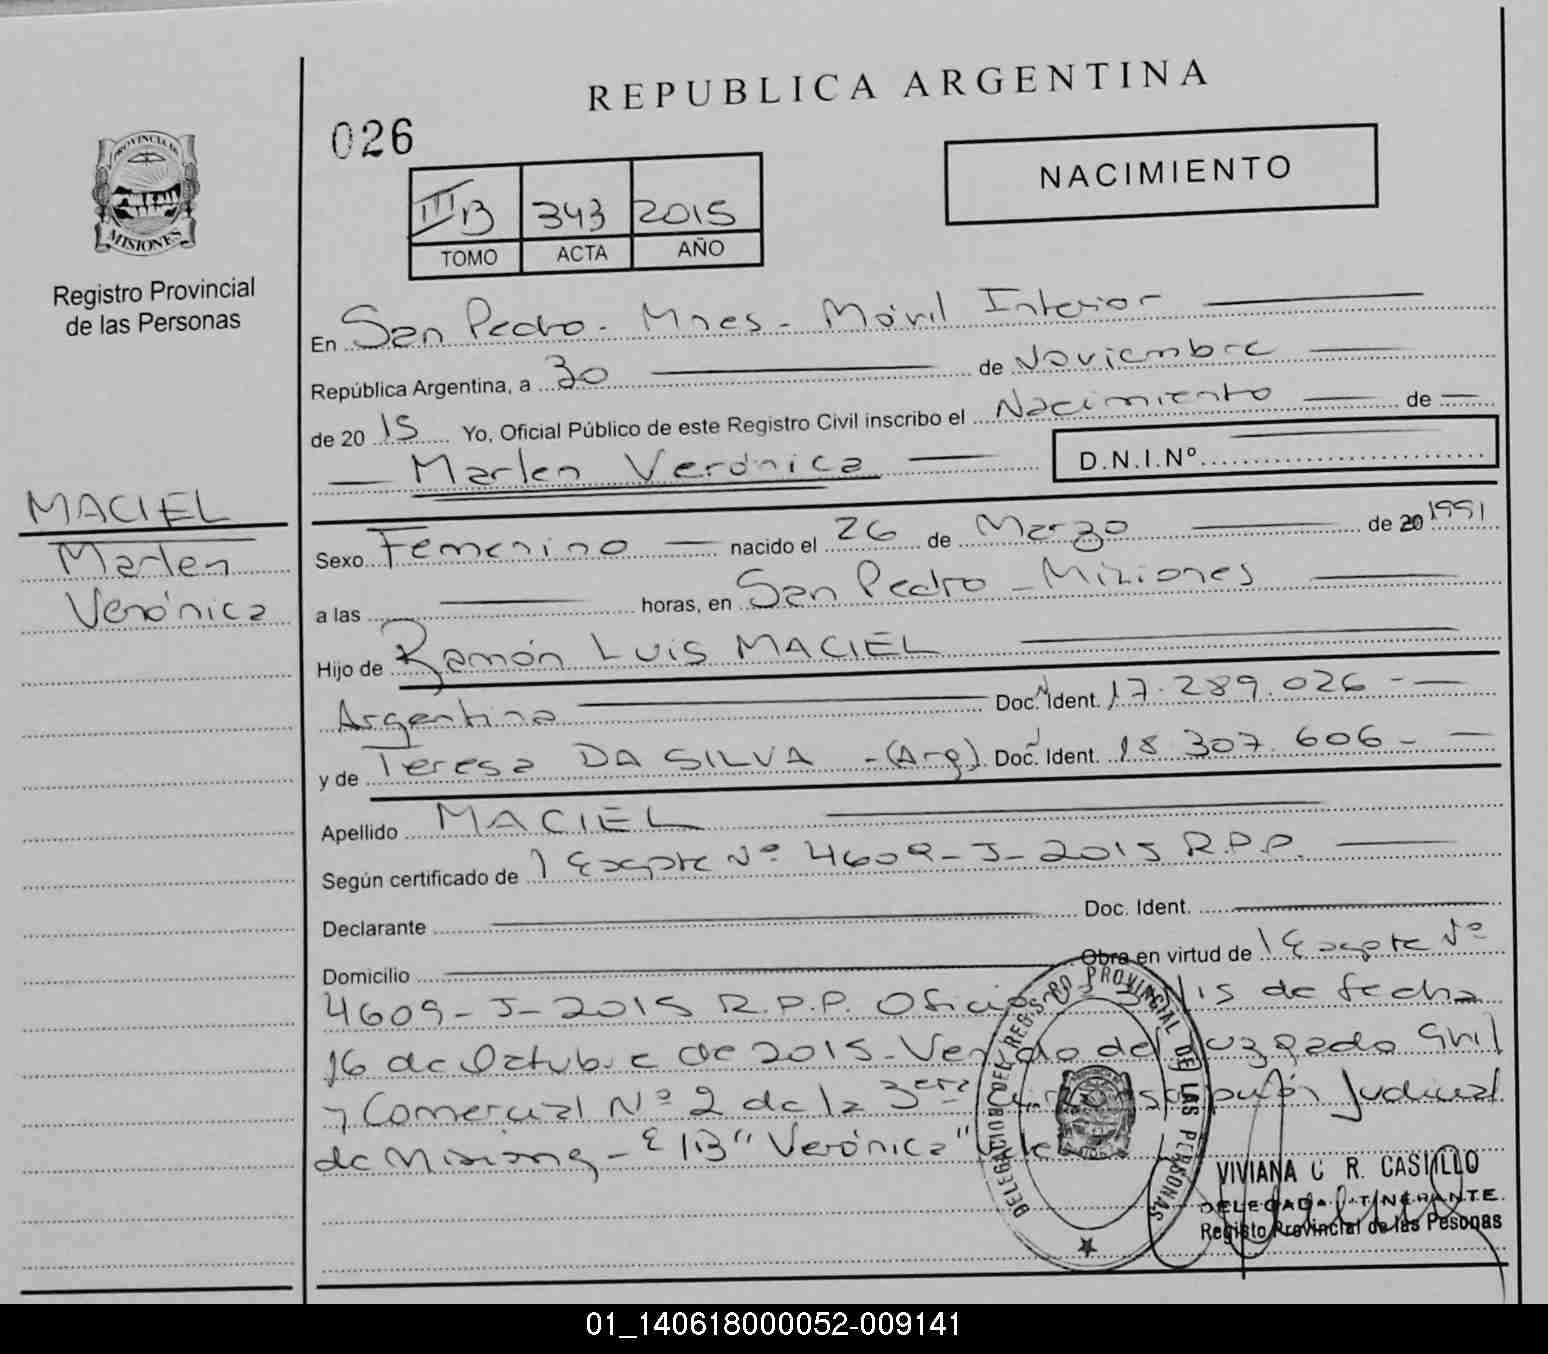 REPUBLICA ARGENTINA
026
NACIMIENTO
III B 343 2015
TOMO ACTA AÑO
PROVINCIA DE
MISIONES
Registro Provincial
de las Personas
En San Pedro - Mnes - Móvil Interior
República Argentina, a 30 de Noviembre
de 20 15 Yo, Oficial Público de este Registro Civil inscribo el Nacimiento de
Marlen Verónica D.N.I.Nº
MACIEL
Marlen
Verónica
Sexo Femenino nacido el 26 de Marzo de 20 1991
a las horas, en San Pedro - Misiones
Hijo de Ramón Luis MACIEL
Argentina Doc. Ident. 17.289.026
y de Teresa DA SILVA - (Arg) Doc. Ident. 18.307.606
Apellido MACIEL
Según certificado de Expte Nº 4609-J-2015 R.P.P.
Declarante Doc. Ident.
Domicilio Obra en virtud de Expte Nº
4609-J-2015 R.P.P. Oficio de fecha
16 de Octubre de 2015 - Venido del Juzgado Civil
y Comercial Nº 2 de la 3era Circunscripción Judicial
de Misiones - E/B "Verónica" Vale
DELEGACION DEL REGISTRO PROVINCIAL DE LAS PERSONAS
VIVIANA R. CASTILLO
DELEGADA ITINERANTE
Registo Provincial de las Pesonas
01_140618000052-009141